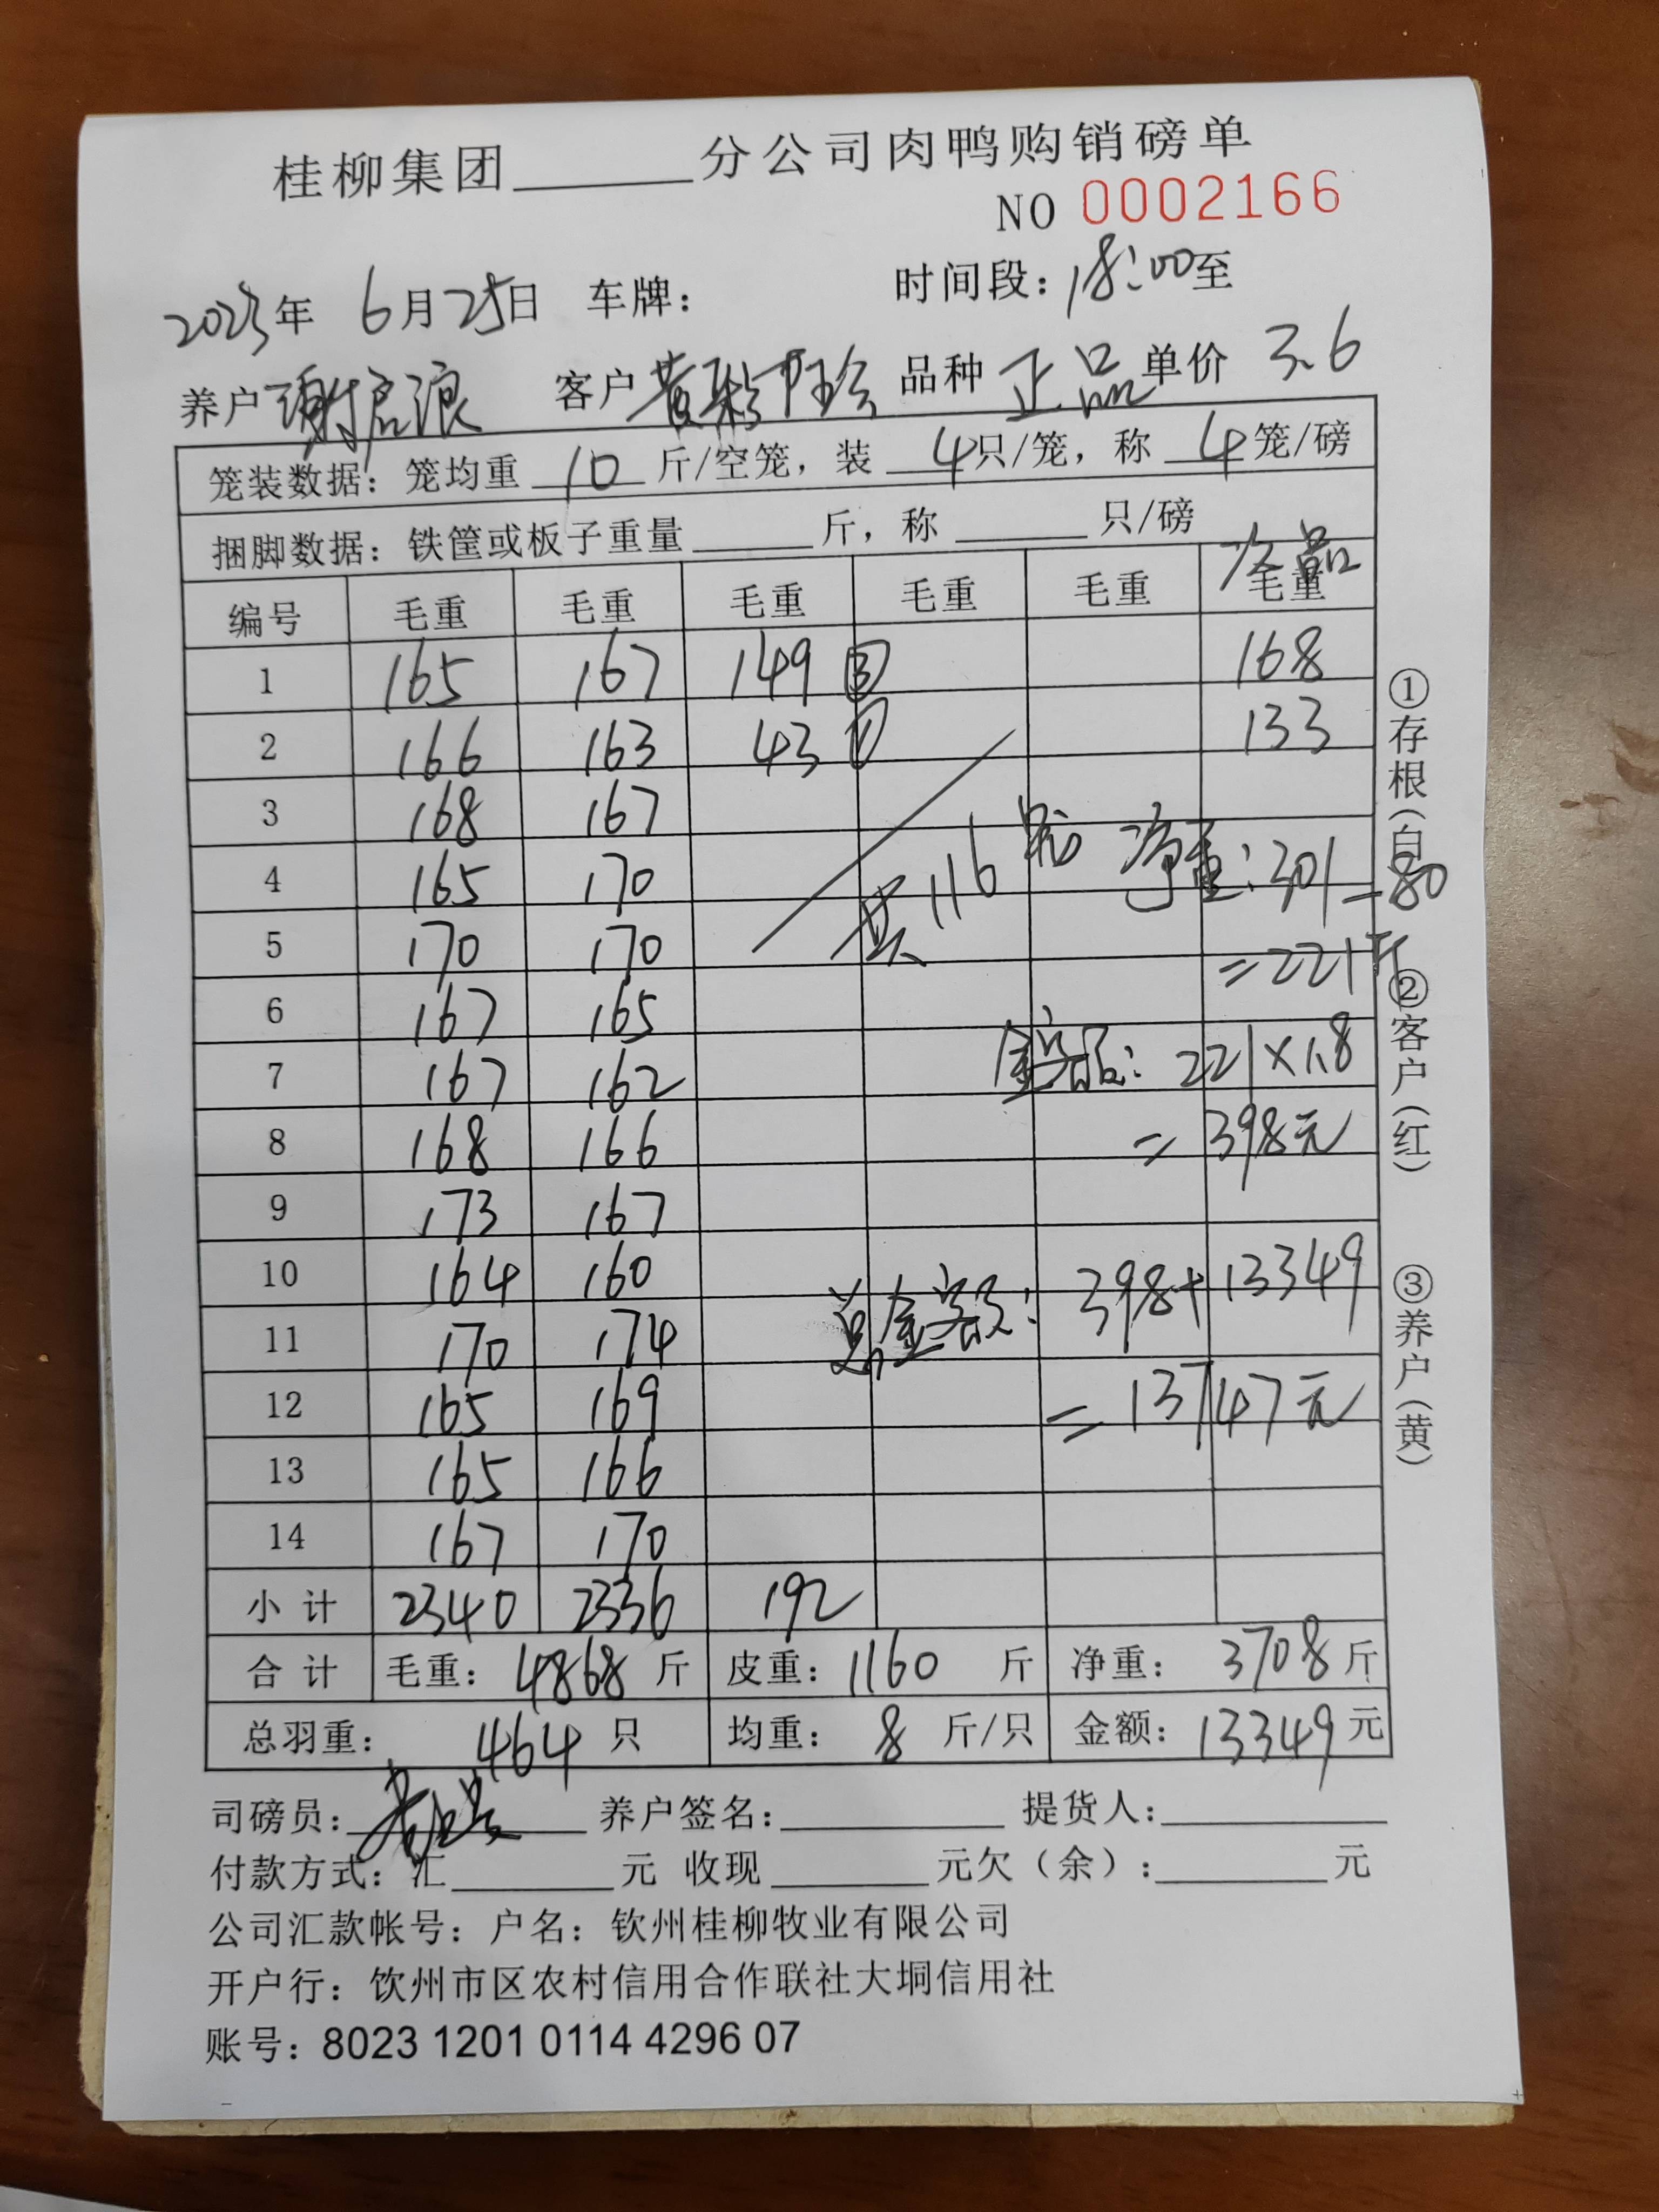 桂柳集团______分公司肉鸭购销磅单
NO 0002166
2023年 6月25日 车牌： 时间段：18:00至
养户 谢启浪 客户 品种 正品 单价 3.6
笼装数据：笼均重 10 斤/空笼，装 4只/笼，称 4笼/磅
捆脚数据：铁筐或板子重量______斤，称______只/磅
次品
编号 毛重 毛重 毛重 毛重 毛重 毛重
1 165 167 149 ③ 168
2 166 163 43 ① 133
3 168 167
4 165 170 共116笼 净重：301-80
5 170 170 =221斤
6 167 165
7 167 162 金额：221×1.8
8 168 166 =398元
9 173 167
10 164 160 总金额：398+13349
11 170 174
12 165 169 =13747元
13 165 166
14 167 170
小计 2340 2336 192
合计 毛重：4868斤 皮重：1160 斤 净重：3708斤
总羽重：464 只 均重：8 斤/只 金额：13349元
①存根（白） ②客户（红） ③养户（黄）
司磅员： 养户签名：______ 提货人：______
付款方式：汇______元 收现______元欠（余）：______元
公司汇款帐号：户名：钦州桂柳牧业有限公司
开户行：钦州市区农村信用合作联社大垌信用社
账号：8023 1201 0114 4296 07